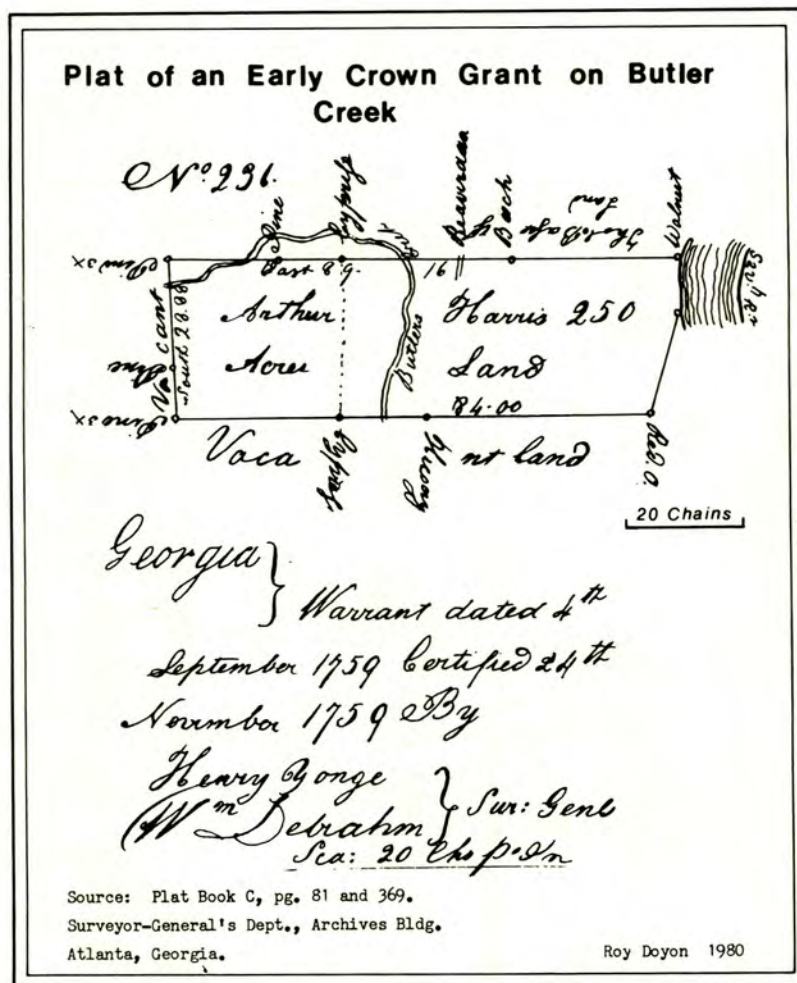 Plat of an Early Crown Grant on Butler
Creek
No. 236.
Pine
Cypress
Beaverdam
Beach
Land
Walnut
Pine 3x
East 89.
91
Savh Rr
Vacant
South 28.88
Arthur
Harris 250
Pine
Acres
Butlers
Land
84.00
Pine 3x
Vaca
Cypress
nt land
Red. O.
20 Chains
Georgia
Warrant dated 4th
September 1759 Certified 24th
Novrmber 1759 By
Henry Yonge
Wm Debrahm
Sur: Genl
Sca: 20 Chs pr In
Source: Plat Book C, pg. 81 and 369.
Surveyor-General's Dept., Archives Bldg.
Atlanta, Georgia.
Roy Doyon 1980